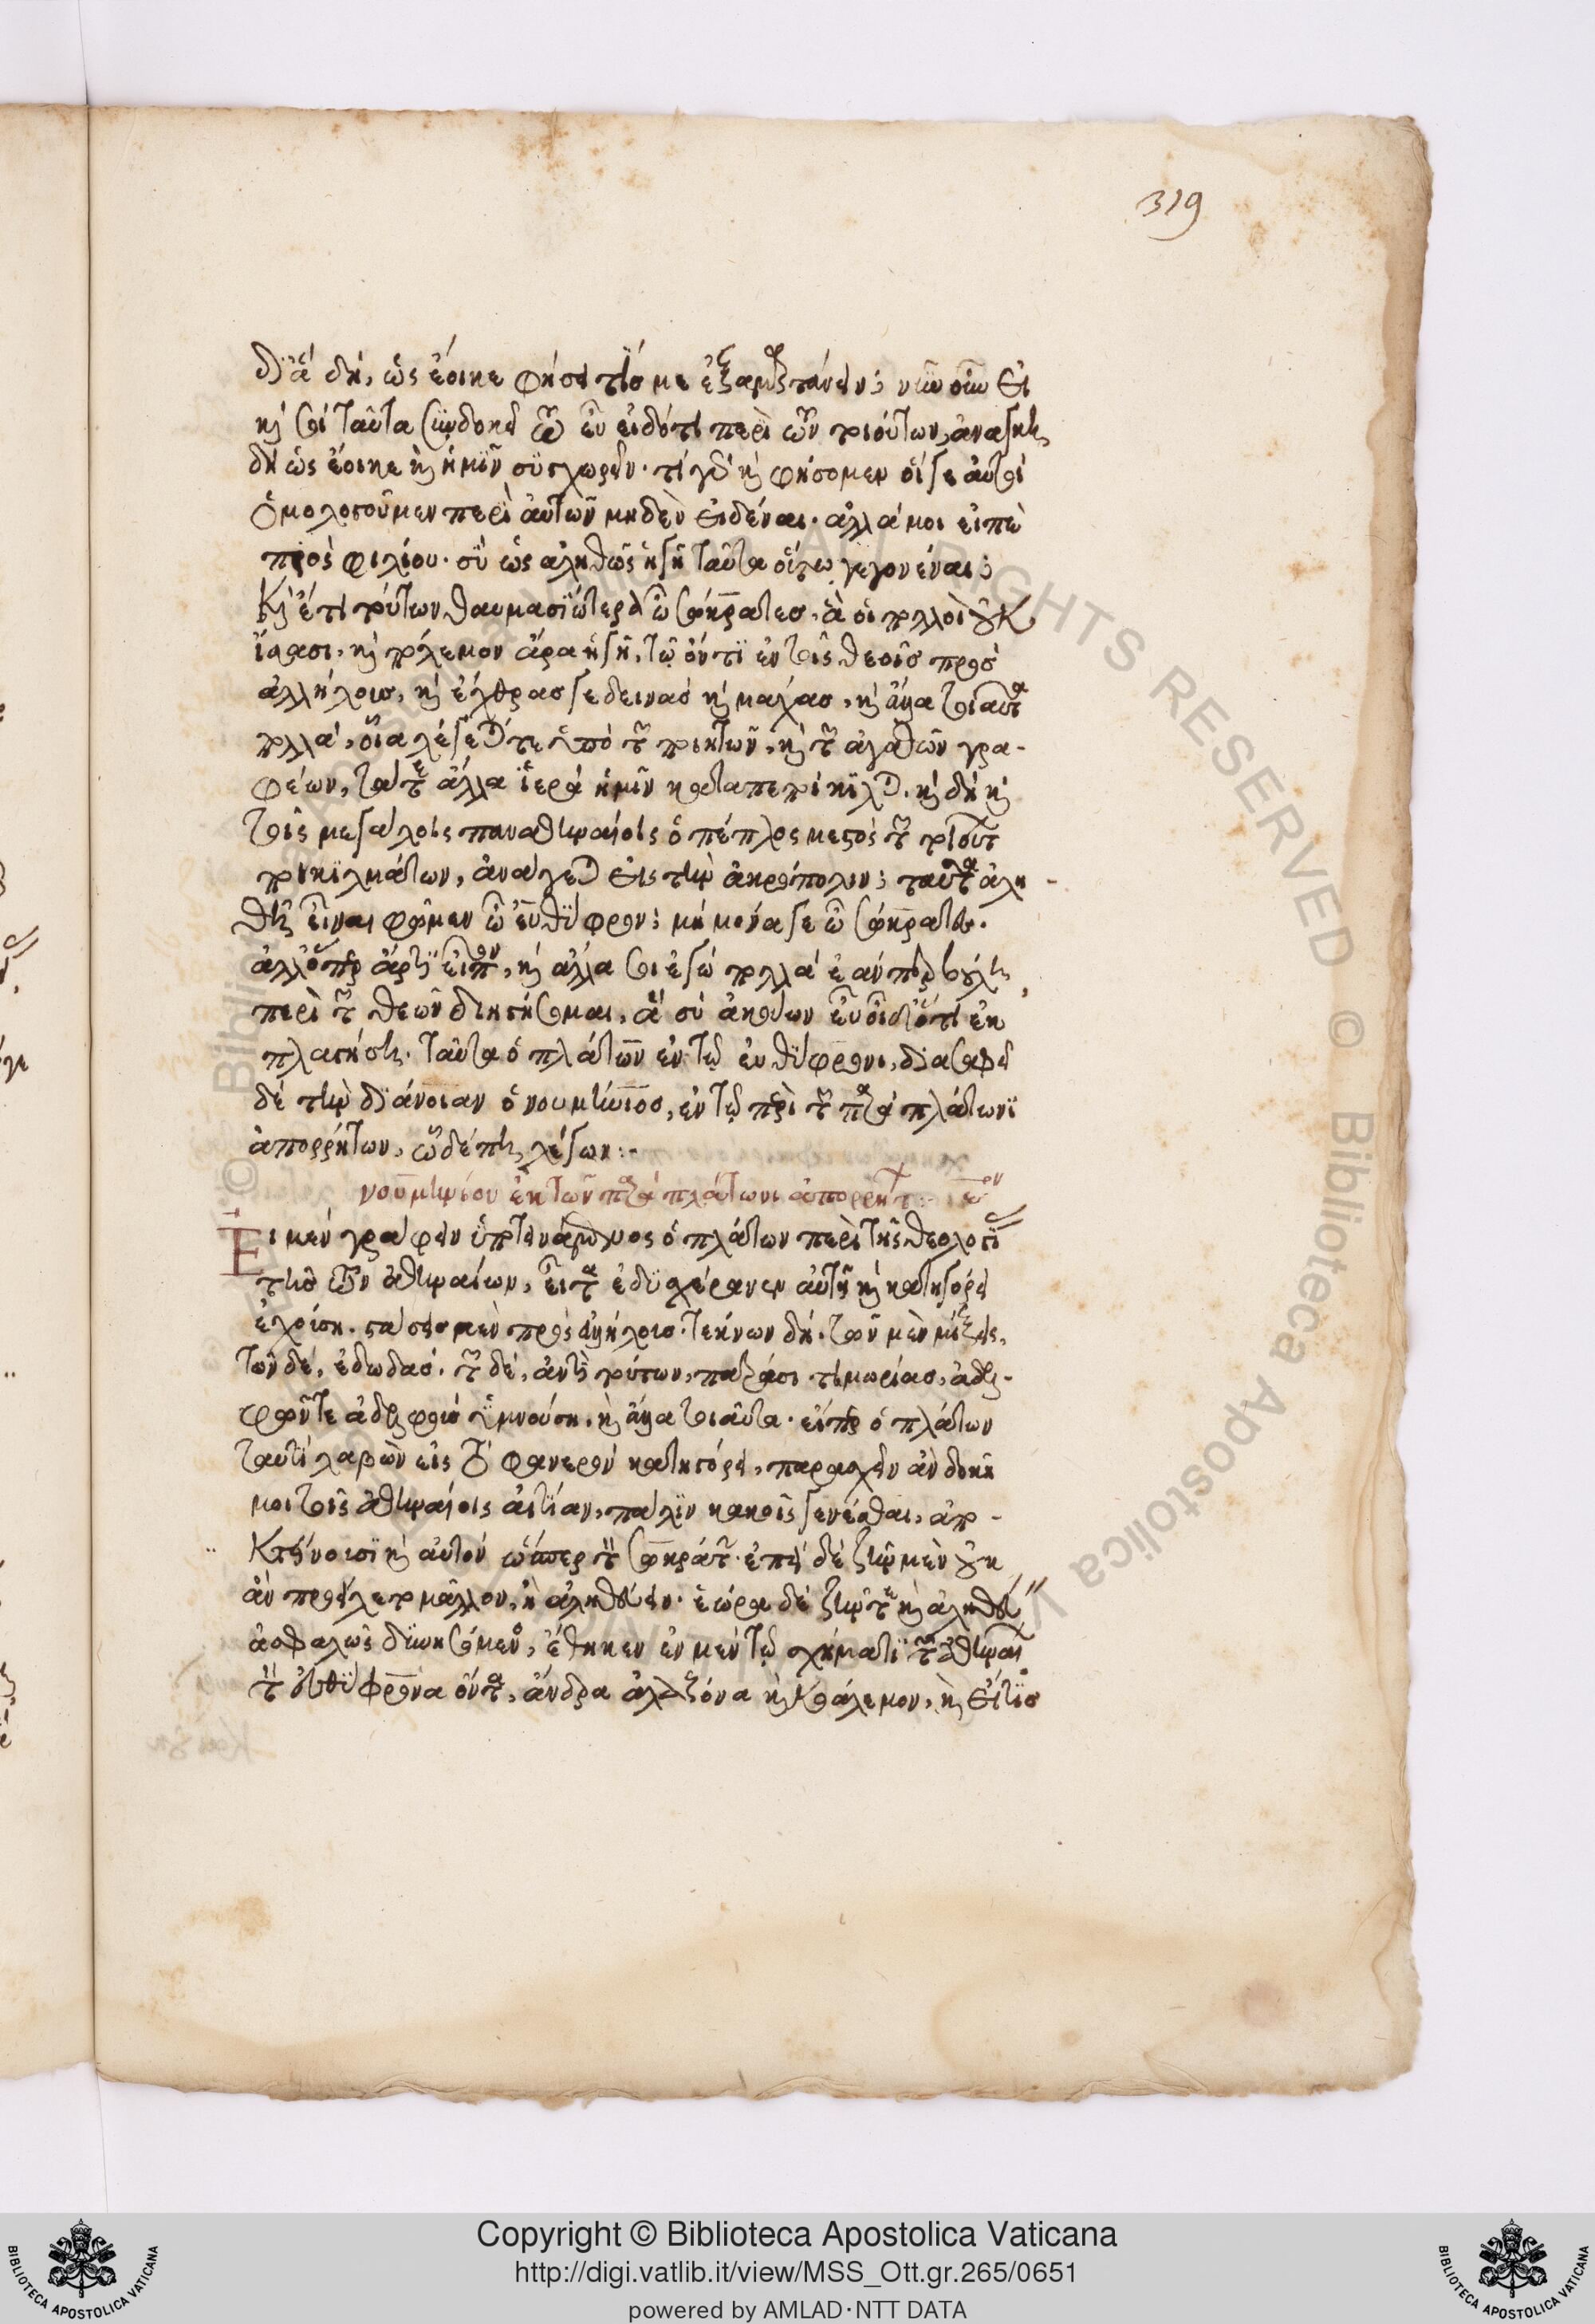 319
διὰ δὴ, ὡς ἔοικε φήσει τίς με ἐξαμαρτάνειν; νῦν οὖν εἰ
καὶ σοὶ ταῦτα συνδοκεῖ τῷ εὖ εἰδότι περὶ τῶν τοιούτων, ἀνάγκη
δὴ ὡς ἔοικε καὶ ἡμῖν συγχωρεῖν. τί γὰρ καὶ φήσομεν οἵ γε αὐτοὶ
ὁμολογοῦμεν περὶ αὐτῶν μηδὲν εἰδέναι. ἀλλά μοι εἰπὲ
πρὸς φιλίου. σὺ ὡς ἀληθῶς ἡγῇ ταῦτα οὕτω γεγονέναι;
Καὶ ἔτι τούτων θαυμασιώτερα ὦ σώκρατες, ἃ οἱ πολλοὶ οὐκ
ἴσασι. καὶ πόλεμον ἄρα ἡγῇ, τῷ ὄντι ἐν τοῖς θεοῖς πρὸς
ἀλλήλοις, καὶ ἔχθρας γε δεινὰς καὶ μάχας, καὶ ἄλλα τοιαῦτα
πολλά, οἷα λέγεται τε ὑπὸ τῶν ποιητῶν, καὶ τῶν ἀγαθῶν γρα-
φέων, τά τε ἄλλα ἱερὰ ἡμῖν καταπεποίκιλται. καὶ δὴ καὶ
τοῖς μεγάλοις παναθηναίοις ὁ πέπλος μεστὸς τῶν τοιούτων
ποικιλμάτων, ἀνάγεται εἰς τὴν ἀκρόπολιν; ταῦτα ἀλη-
θῆ εἶναι φῶμεν ὦ εὐθύφρον; μὴ μόνα γε ὦ σώκρατες.
ἀλλ' ὅπερ ἄρτι εἶπον, καὶ ἄλλα σοι ἐγὼ πολλὰ ἐάνπερ βούλῃ,
περὶ τῶν θεῶν διηγήσομαι, ἃ σὺ ἀκούων εὖ οἶδ' ὅτι ἐκ
πλαγήσῃ. ταῦτα ὁ πλάτων ἐν τῷ εὐθύφρονι, διασαφεῖ
δὲ τὴν διάνοιαν ὁ νουμήνιος, ἐν τῷ περὶ τῶν παρὰ πλάτωνι
ἀπορρήτων, ὧδέ πῃ λέγων:-
νουμηνίου ἐκ τῶν παρὰ πλάτωνι ἀπορρήτων:-
Εἰ μὲν γράφειν ὑποτεινάμενος ὁ πλάτων περὶ τῆς θεολογίας
τῆς τῶν ἀθηναίων, εἶτα ἐδυσχέρανεν αὐτῇ καὶ κατηγόρει
ἐχούσῃ. στάσεις μὲν πρὸς ἀλλήλους. τέκνων δὴ. τῶν μὲν μίξεις,
τῶν δὲ, ἐδωδάς. τῶν δὲ, ἀντὶ τούτων, πατράσι τιμωρίας, ἀδελ-
φῶν τε ἀδελφοῖς ὑμνούσῃ. καὶ ἄλλα τοιαῦτα. εἴπερ ὁ πλάτων
ταυτὶ λαβὼν εἰς τὸ φανερὸν κατηγόρει, παρασχεῖν ἂν δοκῇ
μοι τοῖς ἀθηναίοις αἰτίαν, πάλιν κακοῖς γενέσθαι, ἀπο-
Κτείνουσι καὶ αὐτόν ὥσπερ τὸν σωκράτη. ἐπεὶ δὲ ζῆν μὲν οὐκ
ἂν προείλετο μᾶλλον, ἢ ἀληθεύειν. ἑώρα δὲ ζῆν τε καὶ ἀληθεύειν
ἀσφαλῶς δυνησόμενος, ἔθηκεν ἐν μὲν τῷ σχήματι τῶν ἀθηναίων
τὸν εὐθύφρονα ὄντα, ἄνδρα ἀλαζόνα καὶ κοάλεμον, καὶ εἴ τις
Copyright © Biblioteca Apostolica Vaticana
http://digi.vatlib.it/view/MSS_Ott.gr.265/0651
powered by AMLAD·NTT DATA